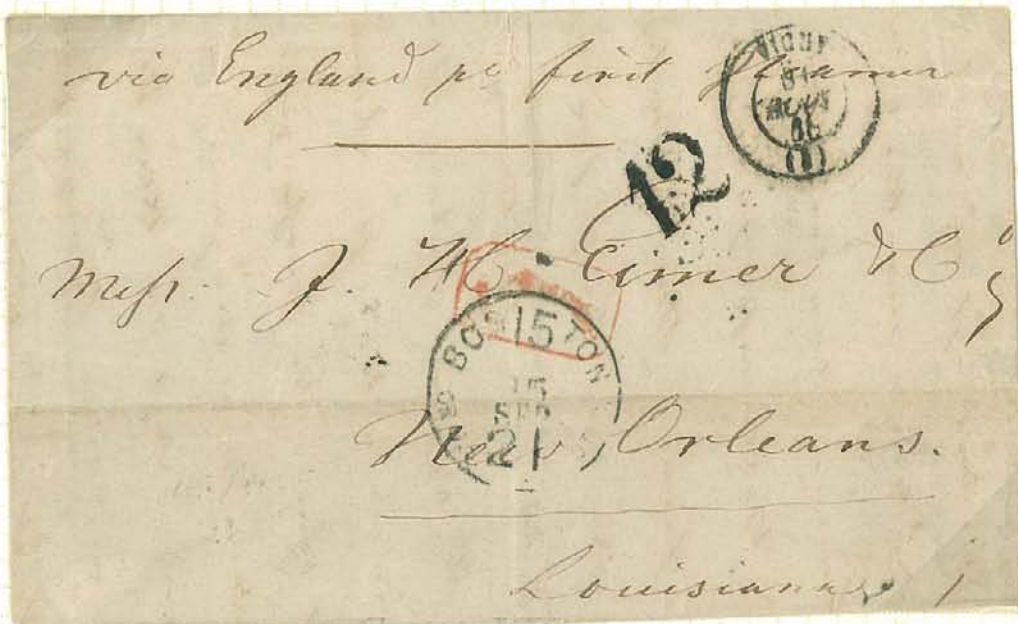 via England pr first Steamer
VICHY
AOUT
(1)
12
Messr. J. H. Eimer & Co
BOSTON
15
15
SEP
21
New Orleans.
Louisiana